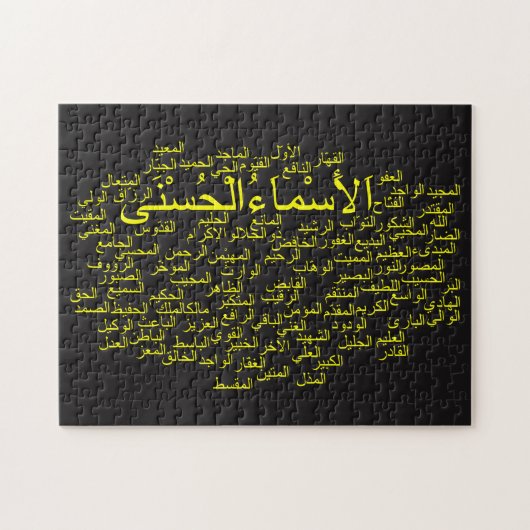 الأول المعيد
القهار الماجد
النافع القيوم الحميد
الحي الجبار
العفو المتعال
المجيد الواجد الرزاق الولي
اَلأَسْماَءُ الْحُسْنَى
الفتاح
المقتدر المقيت
الله الشكور التواب الرشيد المانع الجليل القدوس المغني
الضار المحيي البديع الغفور الخافض ذو الجلال والإكرام
المبدىء العظيم المميت الرحيم المهيمن الرحمن المحصي الجامع
المصور النور البصير الوهاب الوارث المؤخر الرؤوف
البر الحسيب اللطيف القابض الظاهر المجيب الصبور
الهادي الواسع منتقم الرقيب المتكبر الحكيم السميع الحق
الوالي البارئ الكريم المقدم المؤمن الرافع مالك الملك الحفيظ الصمد
الودود الغني الباقي العزيز الباعث الوكيل
العليم الجليل الشهيد الآخر الخبير القوي الباسط الباطن العدل
القادر الكبير العلي الغفار لواجد الخالق المعز
المذل المتين المقسط